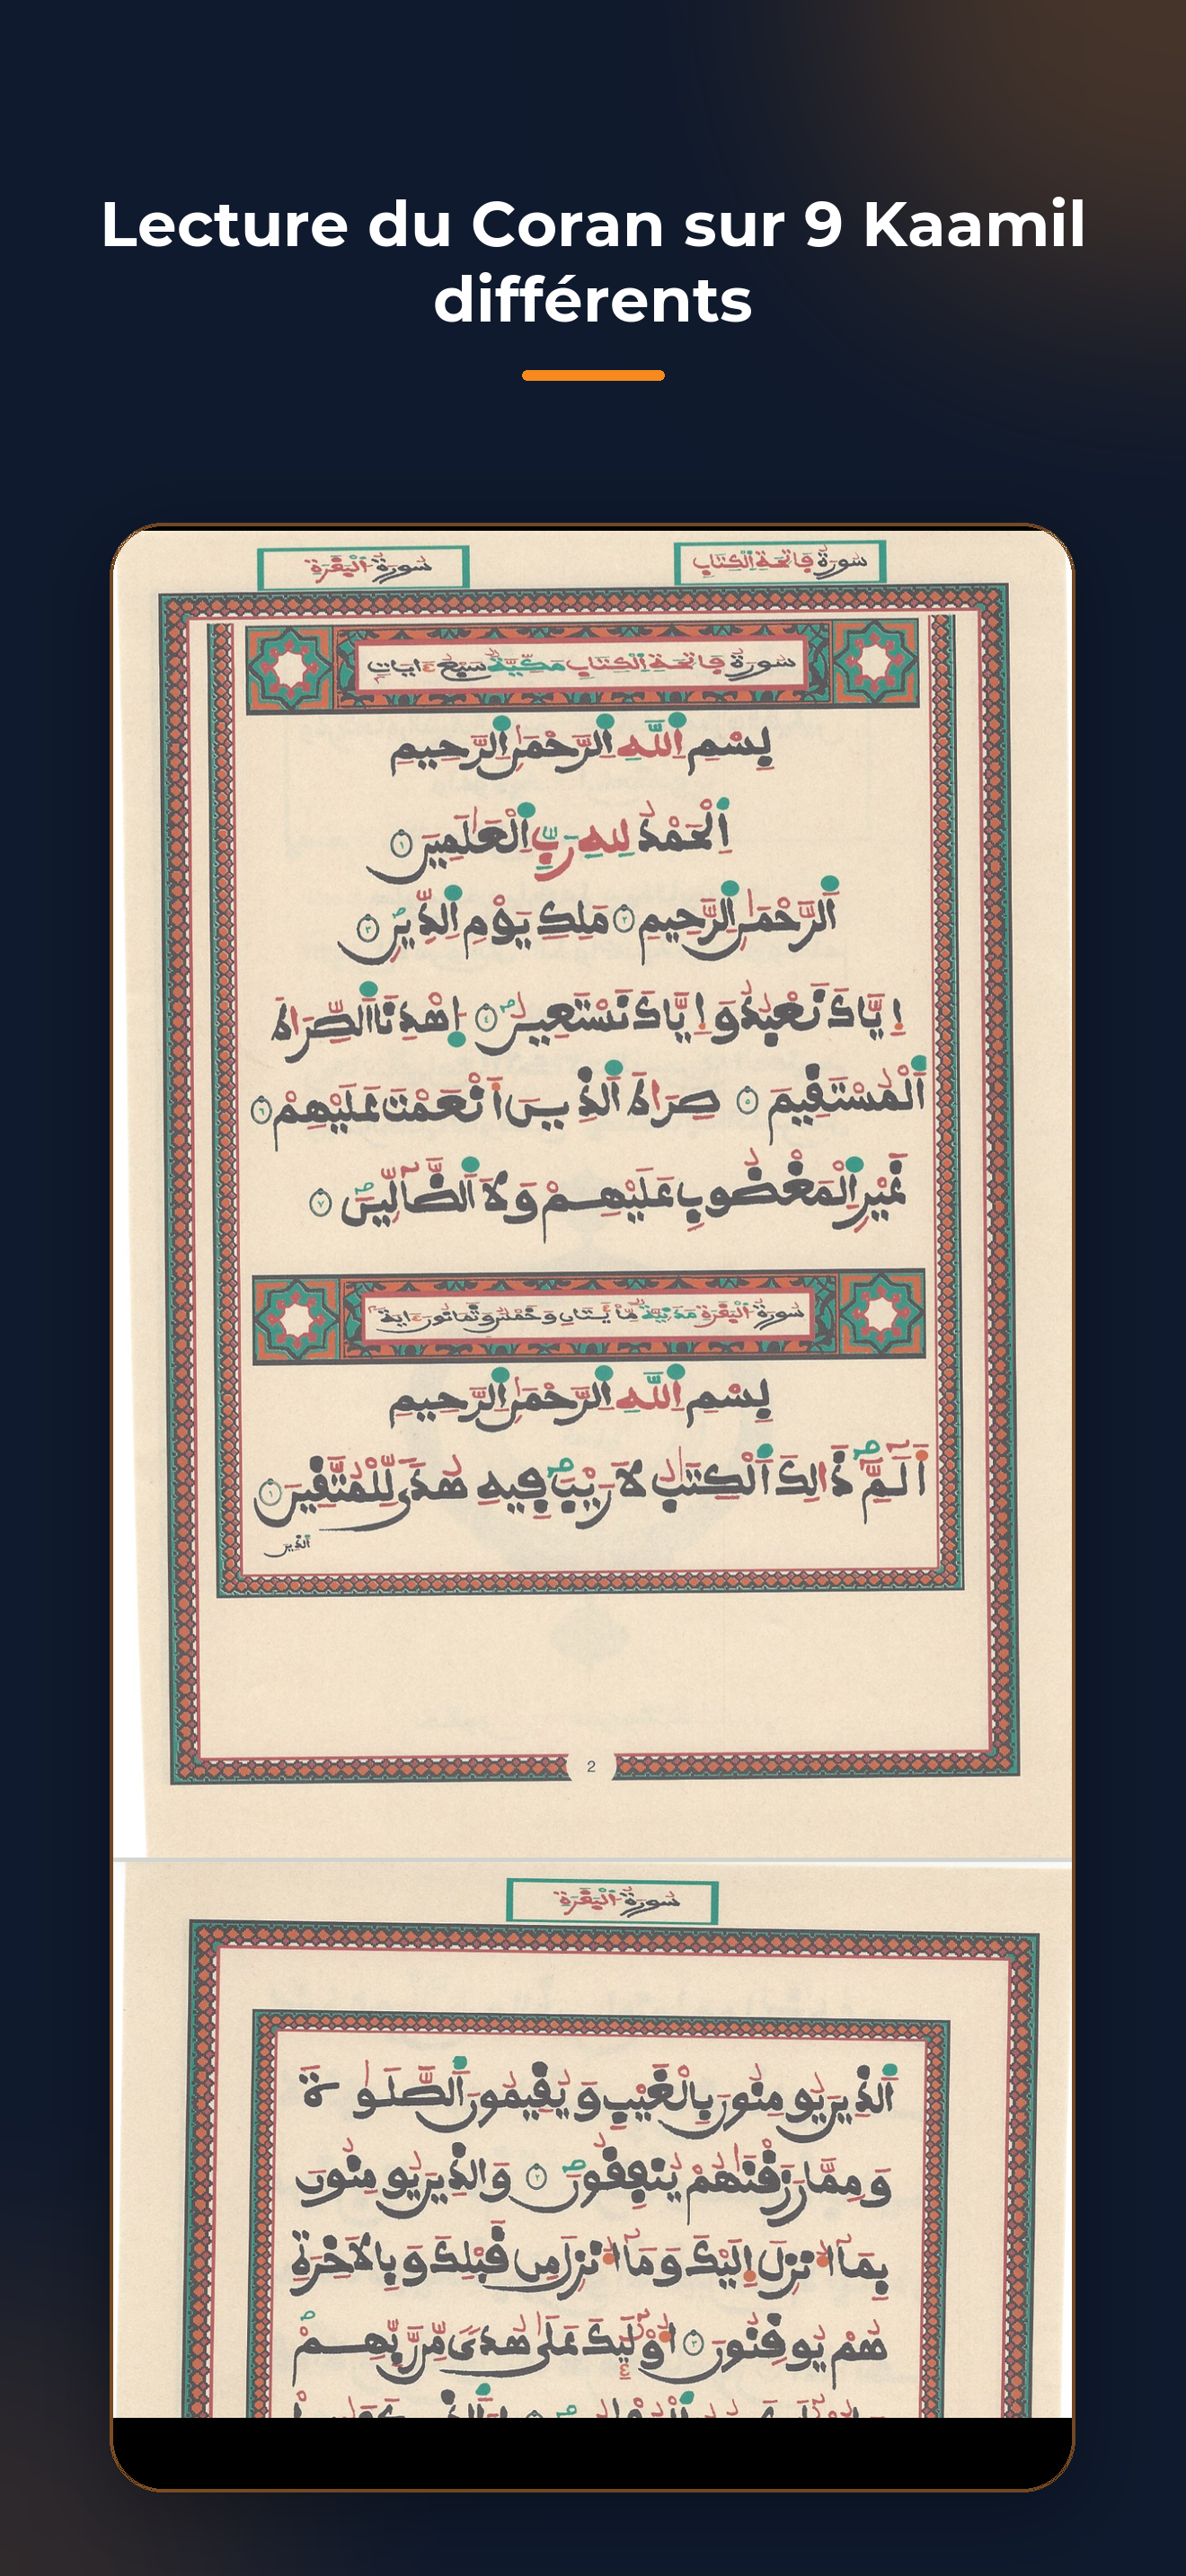 Lecture du Coran sur 9 Kaamil
différents
سُورَةُ فَاتِحَةِ الْكِتَابِ
سُورَةُ الْبَقَرَةِ
سُورَةُ فَاتِحَةِ الْكِتَابِ مَكِّيَّةٌ سَبْعُ ءَايَاتٍ
بِسْمِ اِ۬للَّهِ اِ۬لرَّحْمَٰنِ اِ۬لرَّحِيمِ
اَ۬لْحَمْدُ لِلهِ رَبِّ اِ۬لْعَٰلَمِينَ ١
اَ۬لرَّحْمَٰنِ اِ۬لرَّحِيمِ ٢ مَلِكِ يَوْمِ اِ۬لدِّينِ ٣
إِيَّاكَ نَعْبُدُ وَإِيَّاكَ نَسْتَعِينُ ٤ اُ۪هْدِنَا اَ۬لصِّرَاطَ
اَ۬لْمُسْتَقِيمَ ٥ صِرَاطَ اَ۬لذِينَ أَنْعَمْتَ عَلَيْهِمْ ٦
غَيْرِ اِ۬لْمَغْضُوبِ عَلَيْهِمْ وَلَا اَ۬لضَّآلِّينَ ٧
سُورَةُ الْبَقَرَةِ مَدَنِيَّةٌ مِائَتَانِ وَخَمْسٌ وَثَمَانُونَ ءَايَةً
بِسْمِ اِ۬للَّهِ اِ۬لرَّحْمَٰنِ اِ۬لرَّحِيمِ
أَلَٓمِّٓ ذَالِكَ اَ۬لْكِتَٰبُ لَا رَيْبَ فِيهِ هُدىً لِّلْمُتَّقِينَ ١
الذين
2
سُورَةُ الْبَقَرَةِ
اَ۬لذِينَ يُومِنُونَ بِالْغَيْبِ وَيُقِيمُونَ اَ۬لصَّلَوٰةَ
وَمِمَّا رَزَقْنَٰهُمْ يُنفِقُونَ ٢ وَالذِينَ يُومِنُونَ
بِمَآ أُنزِلَ إِلَيْكَ وَمَآ أُنزِلَ مِن قَبْلِكَ وَبِالَاخِرَةِ
هُمْ يُوقِنُونَ ٣ أُوْلَٰٓئِكَ عَلَىٰ هُدىً مِّن رَّبِّهِمْ